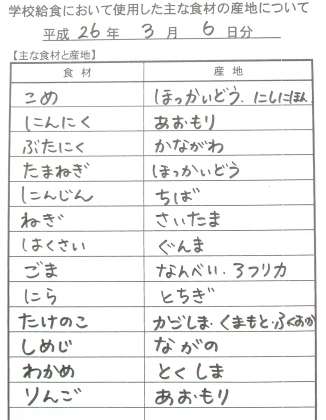 学校給食において使用した主な食材の産地について
平成 26 年 3 月 6 日分
【主な食材と産地】
食 材 産 地
こめ ほっかいどう、にしにほん
にんにく あおもり
ぶたにく かながわ
たまねぎ ほっかいどう
にんじん ちば
ねぎ さいたま
はくさい ぐんま
ごま なんべい・アフリカ
にら とちぎ
たけのこ かごしま・くまもと・ふくおか
しめじ ながの
わかめ とくしま
りんご あおもり